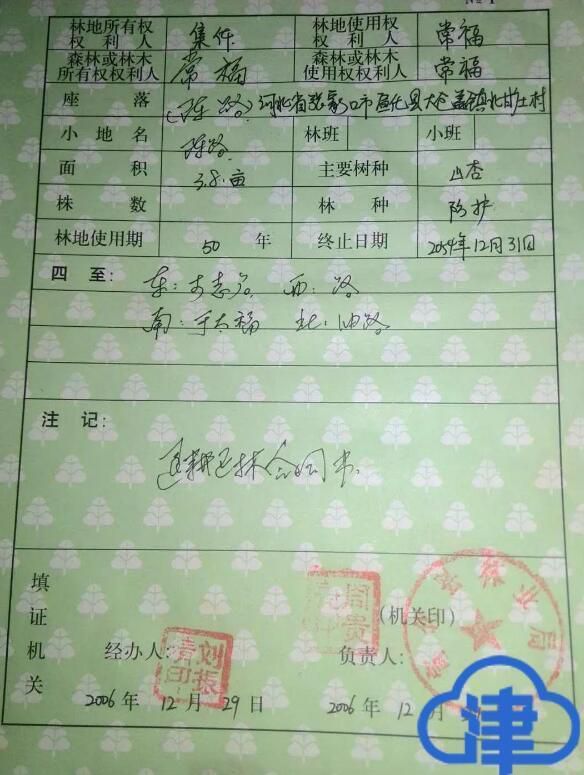 林地所有权权利人 集体 林地使用权权利人 常福
森林或林木所有权权利人 常福 森林或林木使用权权利人 常福
座落 河北省张家口市宣化县大仓盖镇北甘庄村
小地名 林班 小班
面积 3.8.亩 主要树种 山杏
株数 林种 防护
林地使用期 50 年 终止日期 2054年12月31日
四至: 东: 西: 路
南: 于大福 北:
注记:
退耕还林合同书
填证机关
(机关印)
经办人: 刘振清印 负责人: 周贵
2006 年 12 月 29 日 2006 年 12 月
津